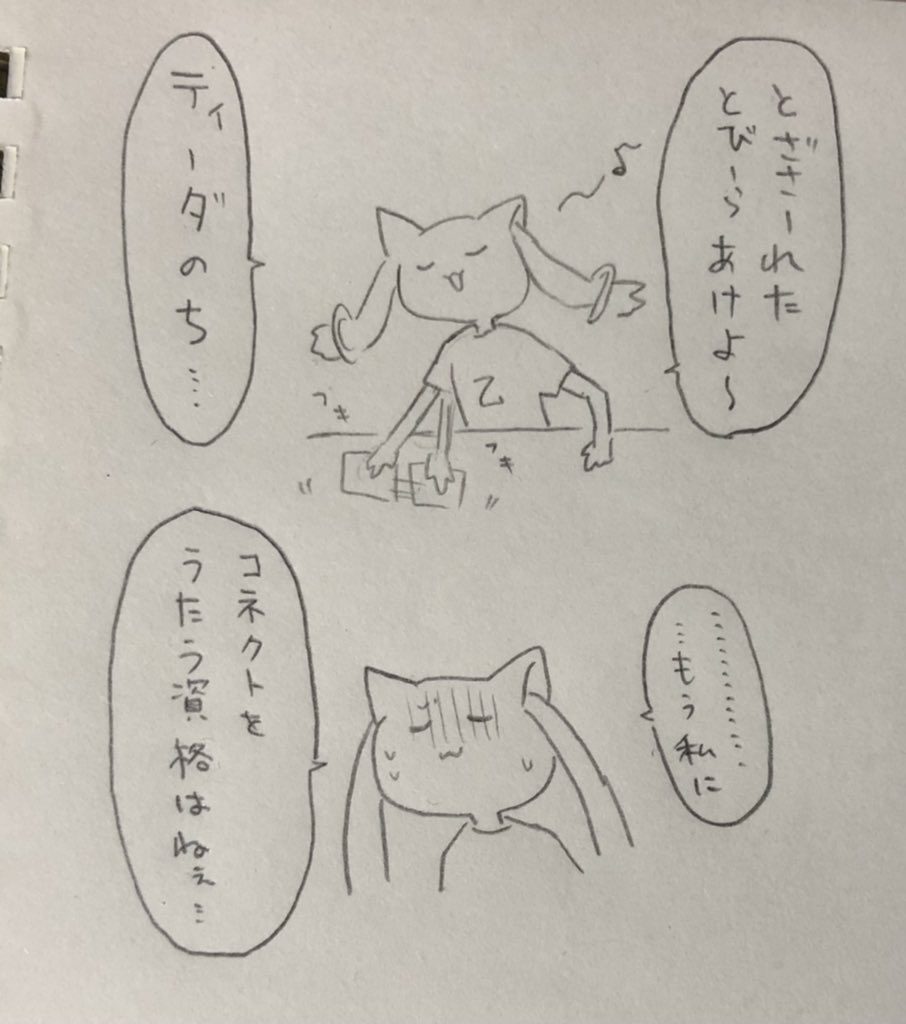 とざさーれた
とびーらあけよ〜
ティーダのち……
乙
つき
つき
…………
…もう私に
コネクトを
うたう資格はねぇ…